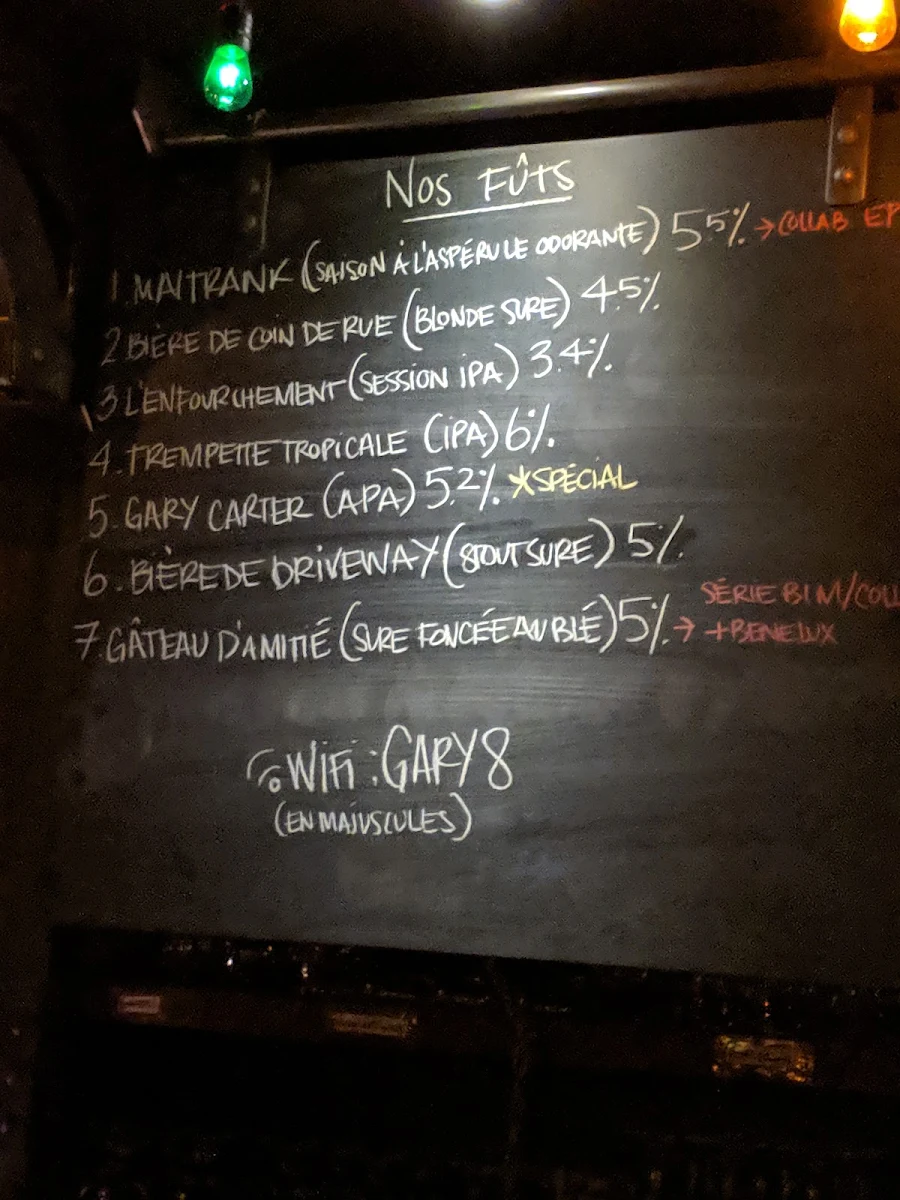 Nos FÛTS
1. MAITRANK (SAISON À L'ASPÉRULE ODORANTE) 5.5% → COLLAB EP
2 BIÈRE DE COIN DE RUE (BLONDE SURE) 4.5%
3 L'ENFOURCHEMENT (SESSION IPA) 3.4%
4. TREMPETTE TROPICALE (IPA) 6%
5. GARY CARTER (APA) 5.2% *SPÉCIAL
6. BIÈRE DE DRIVEWAY (STOUT SURE) 5%
7. GÂTEAU D'AMITIÉ (SURE FONCÉE AU BLÉ) 5% → SÉRIE BIM/COLL
+ BENELUX
WiFi : GARY8
(EN MAJUSCULES)